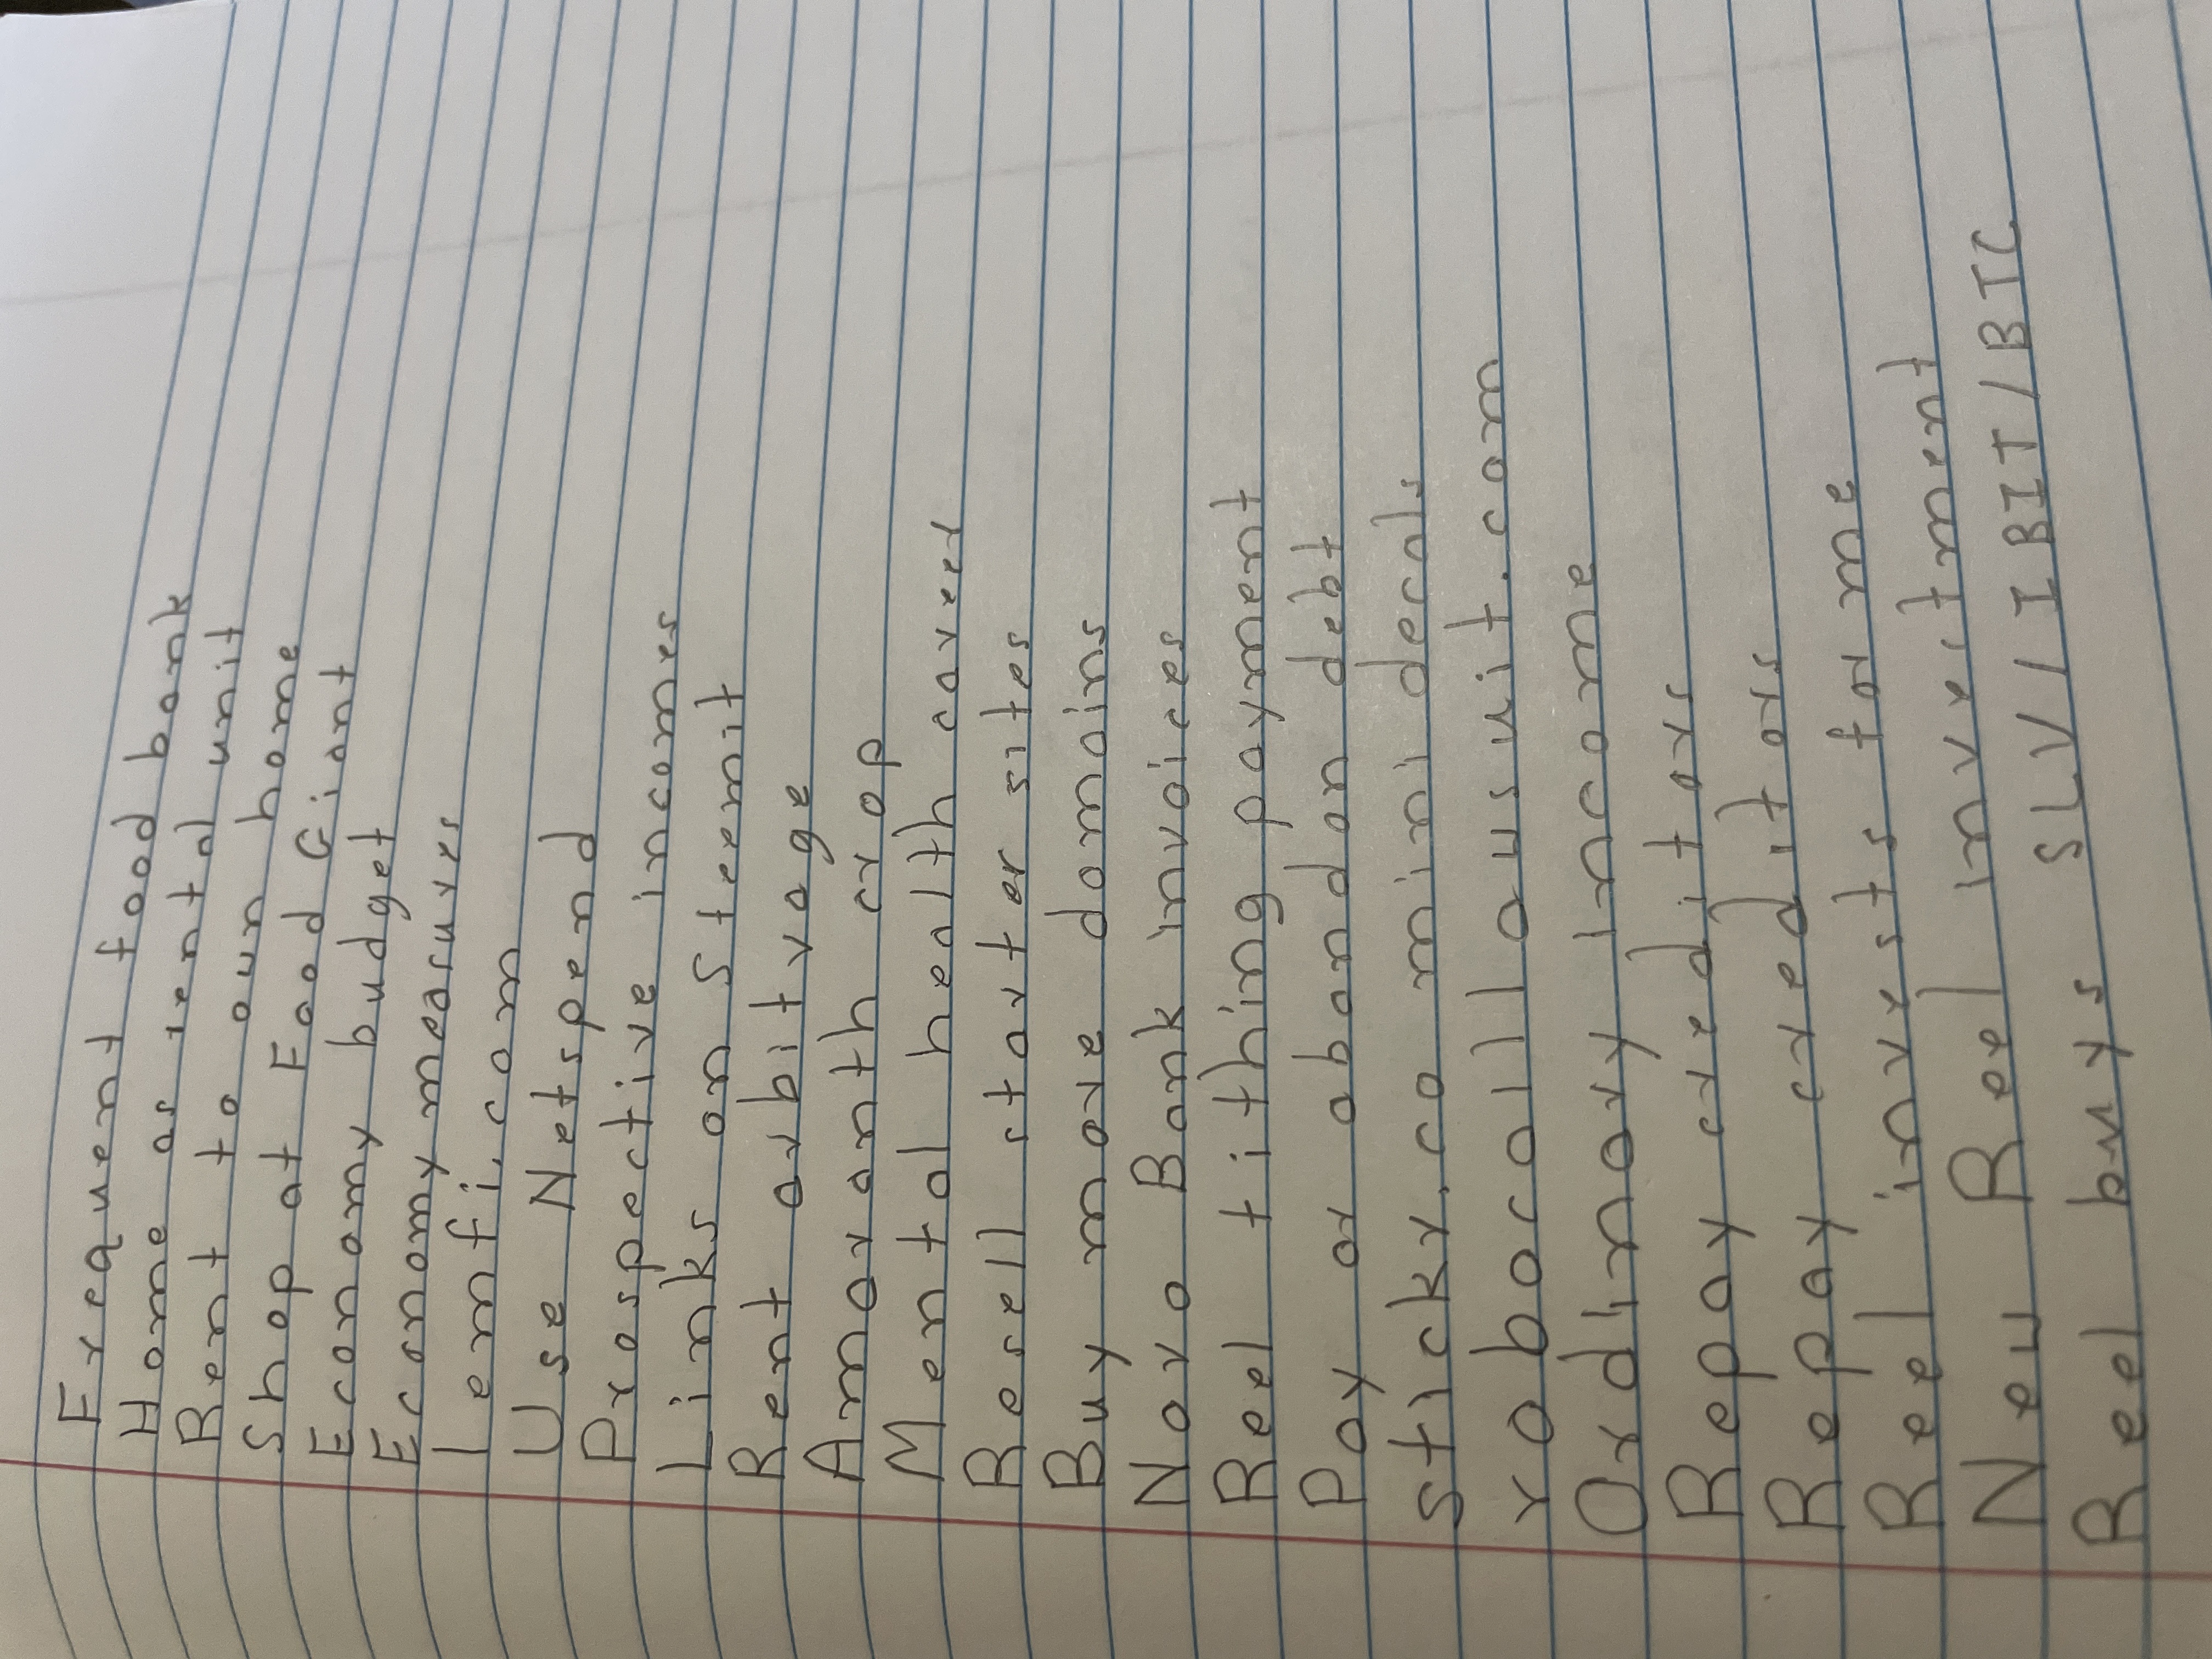 Frequent food bank
Home so rent pd unit
Rent to own home
Shop at Food Giant
Economy budget
Economy measures
lenfi.com
Use NetSpend
Links on Steemit
Rent arbitrage
Amaranth crop
Mental health career
Resell starter sites
Buy more domains
Novo Bank invoices
Reel tithing payment
Pay or abandon debt
sticky.co mini decals
Ordinary income
Repay creditors
Repay creditors
Reel invests for me
New Reel investment
Reel buys SLV/IBIT/BTC